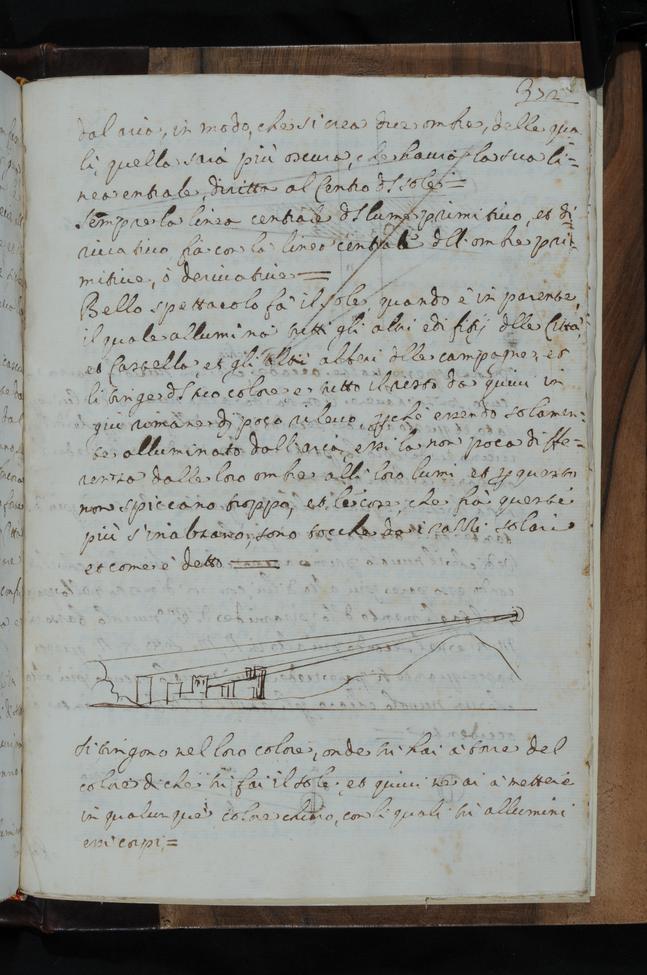 372
dal aria, in modo, che si crea due ombre, delle qua-
li, quella sarà più oscura, che haura la sua li=
nea centrale, diritta al Centro d Sole =
Sempre la linea centrale d lume primitivo, et di
rivativo fia con la linea centrale dll ombre pri=
mitive, ò derivative =
Bello spettacolo fà il sole, quando è in ponente,
il quale allumina tutti gli alti edifitij dlle Città,
et Castella et gli alti alberi dlle campagne, et
li tinge d suo colore e tutto il resto da quivi in
giù rimane di poco rilevo, essendo solamen=
te alluminato dall aria, non poca diffe=
renza dalle loro ombre alli loro lumi et questo
non spiccano troppo, et le cose, che frà queste
più s'inalzano, sono tocche da i razzi solari
et come è detto
si tingono nel loro colore, onde tu hai à torre del
colore di che tu fai il sole, et quivi ne ai à mettere
in qualunque colore chiaro, con li quali tu allumini
essi corpi =